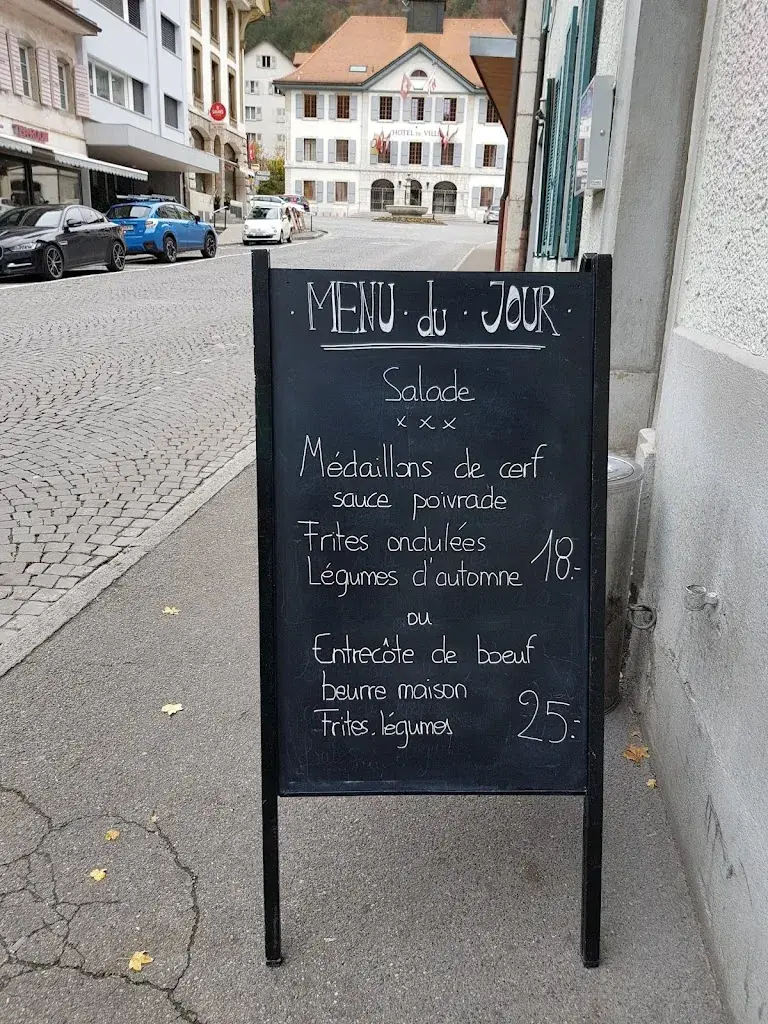 HOTEL DE VILLE
· MENU · du · JOUR ·
Salade
x x x
Médaillons de cerf
sauce poivrade
Frites ondulées
Légumes d'automne 18.-
ou
Entrecôte de boeuf
beurre maison
Frites. légumes 25.-